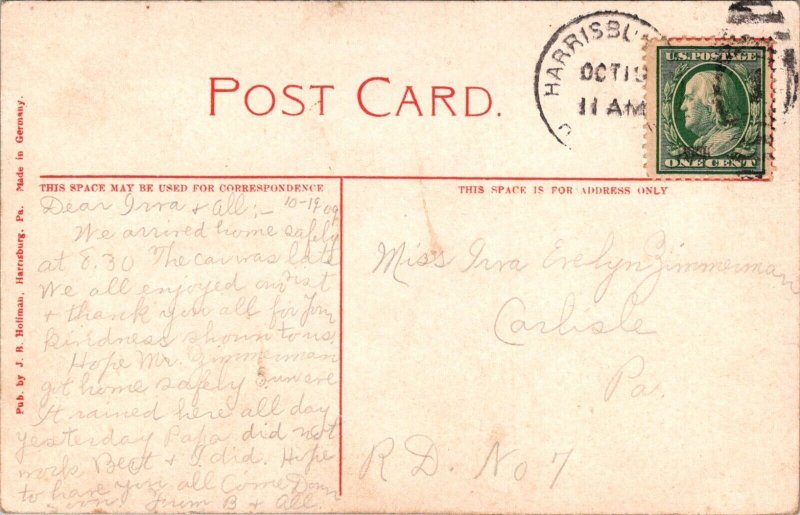 POST CARD.
HARRISBU
OCT 19
11 AM
U.S. POSTAGE
ONE CENT
Pub. by J. B. Hoffman, Harrisburg, Pa. Made in Germany.
THIS SPACE MAY BE USED FOR CORRESPONDENCE
THIS SPACE IS FOR ADDRESS ONLY
Dear Irva & All:- 10-19 09
We arrived home safely
at 8.30 The car was late
We all enjoyed our
& thank you all for
kindness shown to us.
Hope Mr. Zimmerman
got home safely
It rained here all day
yesterday Papa did not
work & I did. Hope
to have you all Come Down
soon From B & All.
Miss Irva Evelyn Zimmerman
Carlisle
Pa.
R.D. No 7